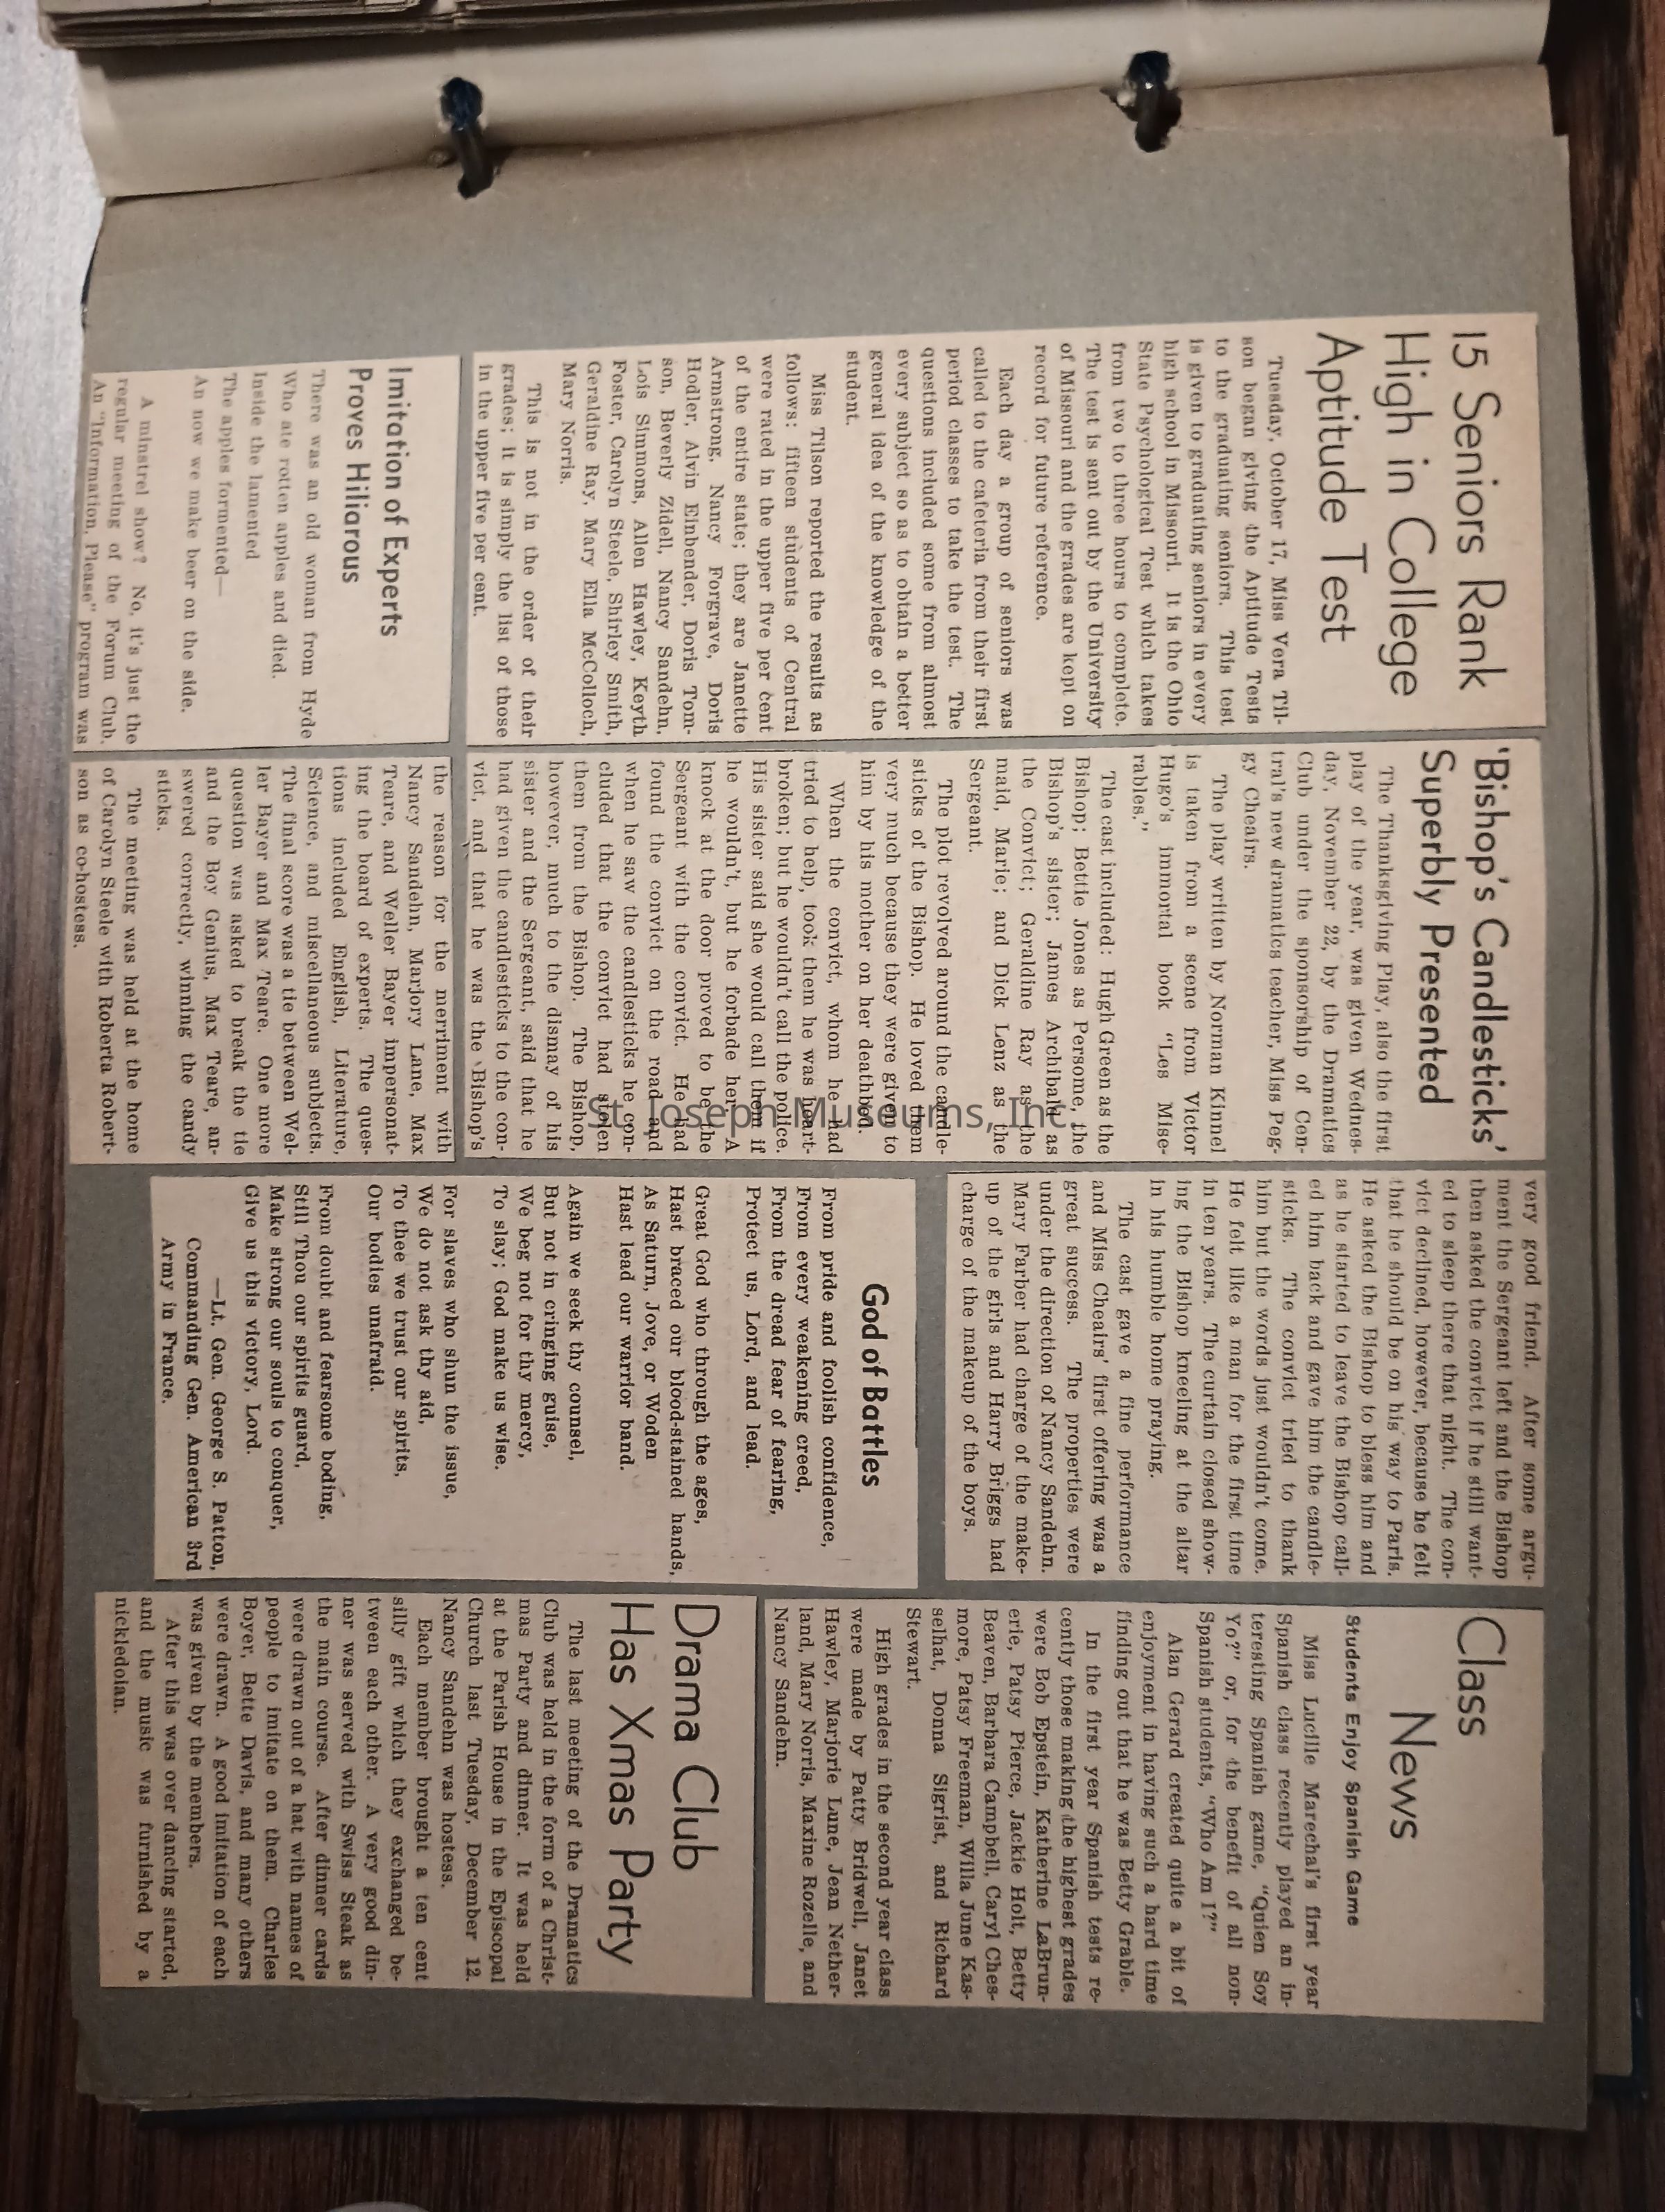 15 Seniors Rank
High in College
Aptitude Test
Tuesday, October 17, Miss Vera Til-
son began giving the Aptitude Tests
to the graduating seniors. This test
is given to graduating seniors in every
high school in Missouri. It is the Ohio
State Psychological Test which takes
from two to three hours to complete.
The test is sent out by the University
of Missouri and the grades are kept on
record for future reference.
Each day a group of seniors was
called to the cafeteria from their first
period classes to take the test. The
questions included some from almost
every subject so as to obtain a better
general idea of the knowledge of the
student.
Miss Tilson reported the results as
follows: fifteen students of Central
were rated in the upper five per cent
of the entire state; they are Janette
Armstrong, Nancy Forgrave, Doris
Hodler, Alvin Einbender, Doris Tom-
son, Beverly Zidell, Nancy Sandehn,
Lois Simmons, Allen Hawley, Keyth
Foster, Carolyn Steele, Shirley Smith,
Geraldine Ray, Mary Ella McColloch,
Mary Norris.
This is not in the order of their
grades; it is simply the list of those
in the upper five per cent.
Imitation of Experts
Proves Hiliarous
There was an old woman from Hyde
Who ate rotten apples and died.
Inside the lamented
The apples formented—
An now we make beer on the side.
A minstrel show? No, it's just the
regular meeting of the Forum Club.
An "Information, Please" program was
'Bishop's Candlesticks'
Superbly Presented
The Thanksgiving Play, also the first
play of the year, was given Wednes-
day, November 22, by the Dramatics
Club under the sponsorship of Cen-
tral's new dramatics teacher, Miss Peg-
gy Cheairs.
The play written by Norman Kinnel
is taken from a scene from Victor
Hugo's immortal book "Les Mise-
rables."
The cast included: Hugh Green as the
Bishop; Bettie Jones as Persome, the
Bishop's sister; James Archibald as
the Convict; Geraldine Ray as the
maid, Marie; and Dick Lenz as the
Sergeant.
The plot revolved around the candle-
sticks of the Bishop. He loved them
very much because they were given to
him by his mother on her deathbed.
When the convict, whom he had
tried to help, took them he was heart-
broken; but he wouldn't call the police.
His sister said she would call them if
he wouldn't, but he forbade her. A
knock at the door proved to be the
Sergeant with the convict. He had
found the convict on the road and
when he saw the candlesticks he con-
cluded that the convict had stolen
them from the Bishop. The Bishop,
however, much to the dismay of his
sister and the Sergeant, said that he
had given the candlesticks to the con-
vict, and that he was the Bishop's
the reason for the merriment with
Nancy Sandehn, Marjory Lane, Max
Teare, and Weller Bayer impersonat-
ing the board of experts. The ques-
tions included English, Literature,
Science, and miscellaneous subjects.
The final score was a tie between Wel-
ler Bayer and Max Teare. One more
question was asked to break the tie
and the Boy Genius, Max Teare, an-
swered correctly, winning the candy
sticks.
The meeting was held at the home
of Carolyn Steele with Roberta Robert-
son as co-hostess.
very good friend. After some argu-
ment the Sergeant left and the Bishop
then asked the convict if he still want-
ed to sleep there that night. The con-
vict declined, however, because he felt
that he should be on his way to Paris.
He asked the Bishop to bless him and
as he started to leave the Bishop call-
ed him back and gave him the candle-
sticks. The convict tried to thank
him but the words just wouldn't come.
He felt like a man for the first time
in ten years. The curtain closed show-
ing the Bishop kneeling at the altar
in his humble home praying.
The cast gave a fine performance
and Miss Cheairs' first offering was a
great success. The properties were
under the direction of Nancy Sandehn.
Mary Farber had charge of the make-
up of the girls and Harry Briggs had
charge of the makeup of the boys.
God of Battles
From pride and foolish confidence,
From every weakening creed,
From the dread fear of fearing,
Protect us, Lord, and lead.
Great God who through the ages,
Hast braced our blood-stained hands,
As Saturn, Jove, or Woden
Hast lead our warrior band.
Again we seek thy counsel,
But not in cringing guise,
We beg not for thy mercy,
To slay; God make us wise.
For slaves who shun the issue,
We do not ask thy aid,
To thee we trust our spirits,
Our bodies unafraid.
From doubt and fearsome boding,
Still Thou our spirits guard,
Make strong our souls to conquer,
Give us this victory, Lord.
—Lt. Gen. George S. Patton,
Commanding Gen. American 3rd
Army in France.
Class
News
Students Enjoy Spanish Game
Miss Lucille Marechal's first year
Spanish class recently played an in-
teresting Spanish game, "Quien Soy
Yo?" or, for the benefit of all non-
Spanish students, "Who Am I?"
Alan Gerard created quite a bit of
enjoyment in having such a hard time
finding out that he was Betty Grable.
In the first year Spanish tests re-
cently those making the highest grades
were Bob Epstein, Katherine LaBrun-
erie, Patsy Pierce, Jackie Holt, Betty
Beaven, Barbara Campbell, Caryl Ches-
more, Patsy Freeman, Willa June Kas-
selhat, Donna Sigrist, and Richard
Stewart.
High grades in the second year class
were made by Patty Bridwell, Janet
Hawley, Marjorie Lune, Jean Nether-
land, Mary Norris, Maxine Rozelle, and
Nancy Sandehn.
Drama Club
Has Xmas Party
The last meeting of the Dramatics
Club was held in the form of a Christ-
mas Party and dinner. It was held
at the Parish House in the Episcopal
Church last Tuesday, December 12.
Nancy Sandehn was hostess.
Each member brought a ten cent
silly gift which they exchanged be-
tween each other. A very good din-
ner was served with Swiss Steak as
the main course. After dinner cards
were drawn out of a hat with names of
people to imitate on them. Charles
Boyer, Bette Davis, and many others
were drawn. A good imitation of each
was given by the members.
After this was over dancing started,
and the music was furnished by a
nickledolan.
St. Joseph Museums, Inc.